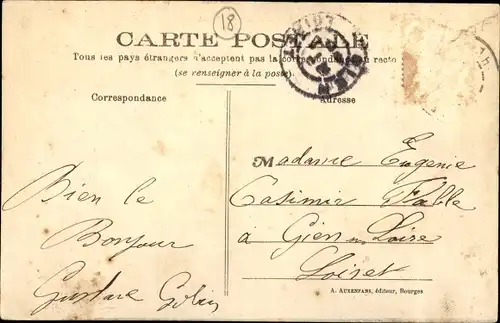 18
CARTE POSTALE
Tous les pays étrangers n'acceptent pas la correspondance au recto
(se renseigner à la poste).
Correspondance
Adresse
GIEN
LOIRET
Madame Eugenie
Casimir
à Gien sur Loire
Loiret
Bien le
Bonjour
Gustave
A. AUXENFANS, éditeur, Bourges